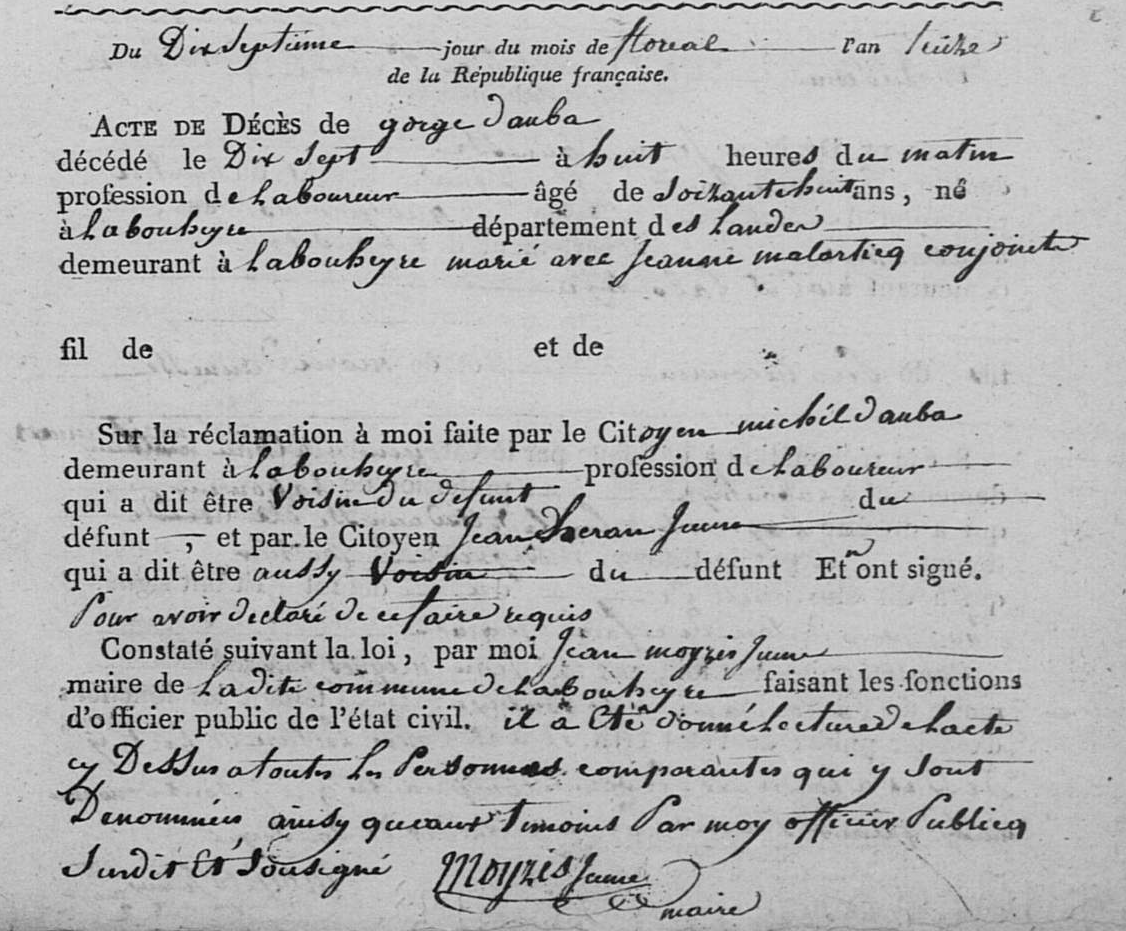 Du Dix Septieme jour du mois de floreal l'an treize
de la République française.
ACTE DE DÉCÈS de gorge dauba
décédé le Dix Sept à huit heures du matin
profession de Laboureur âgé de Soixante huit ans, né
à Labouheyre département des Landes
demeurant à Labouheyre marié avec Jeanne malarticq conjointe
fil de et de
Sur la réclamation à moi faite par le Citoyen michél dauba
demeurant à Labouheyre profession de Laboureur
qui a dit être Voisin du defunt du
défunt , et par le Citoyen Jean Jeune
qui a dit être aussy Voisin du défunt Et n'ont signé.
Pour avoir declaré de ce faire requis
Constaté suivant la loi, par moi Jean moyzis Jeune
maire de Ladite commune de Labouheyre faisant les fonctions
d'officier public de l'état civil. il a Eté donné Lecture de Lacte
cy Dessus a toutes les Personnes comparantes qui y Sont
Denommées ainsy queaux Temoins Par moy officier Publicq
Susdit Et Sousigné Moyzis Jeune
maire